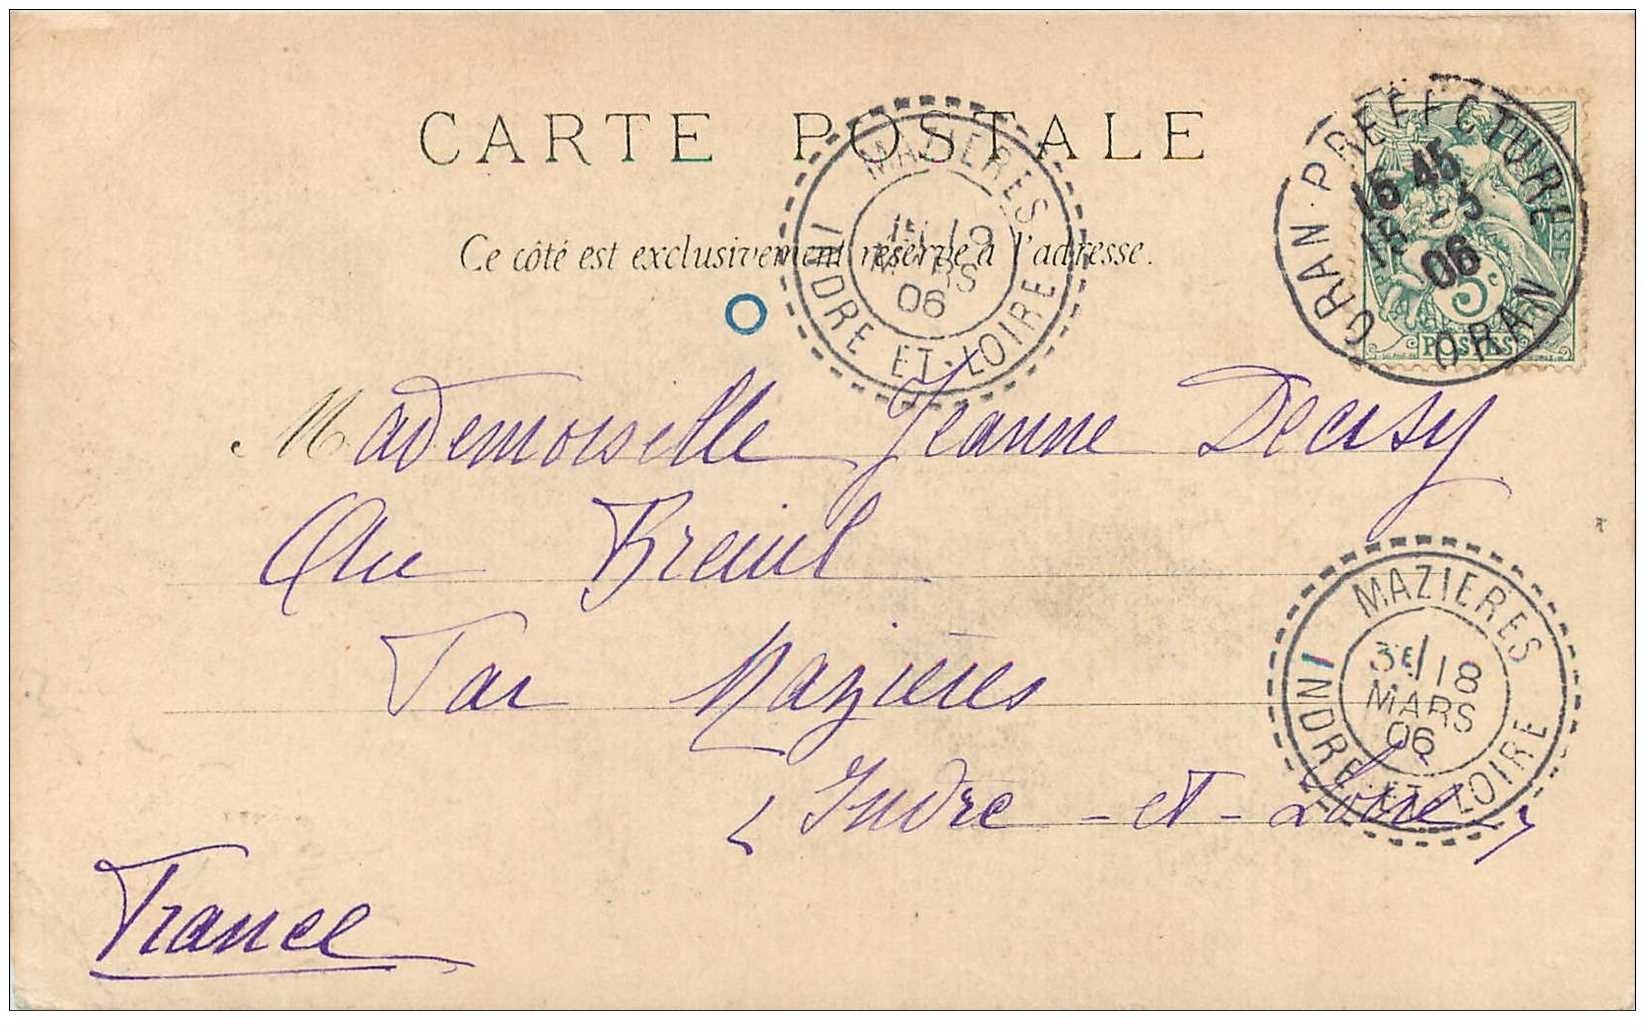 CARTE POSTALE
Ce côté est exclusivement réservé à l'adresse.
ORAN · PREFECTURE
15 45
06
ORAN
5c
POSTES
MAZIERES
1E/19
MARS
06
INDRE-ET-LOIRE
Mademoiselle Jeanne Decisy
Au Breuil
Par Mazières
(Indre-et-Loire)
France
MAZIERES
3E/18
MARS
06
INDRE-ET-LOIRE